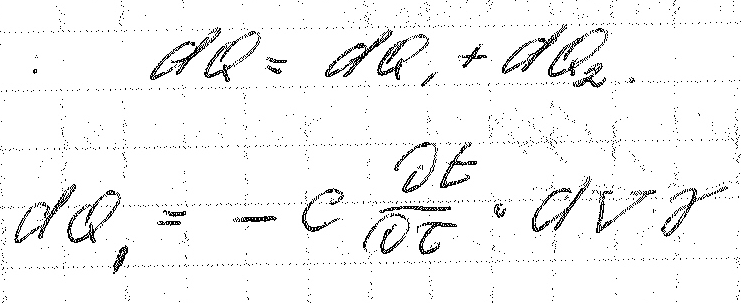 dQ = dQ₁ + dQ₂.
dQ₁ = - c ∂t/∂τ · dV γ